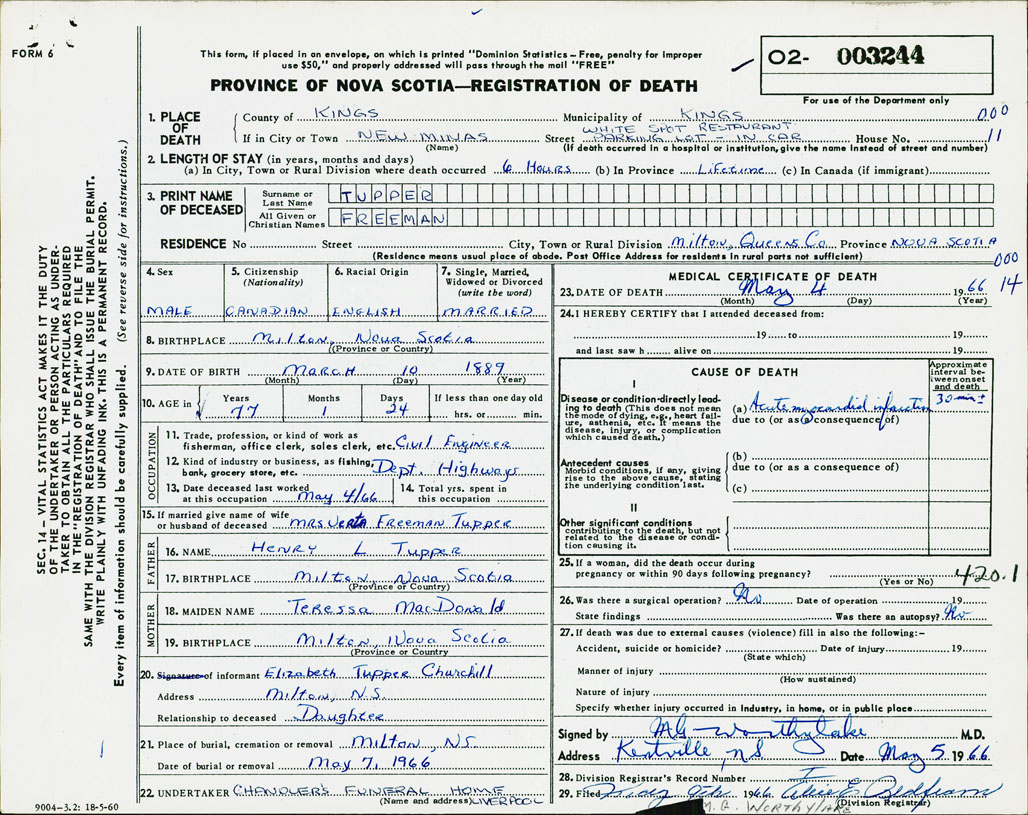 FORM 6
This form, if placed in an envelope, on which is printed "Dominion Statistics – Free, penalty for improper
use $50," and properly addressed will pass through the mail "FREE"
O2- 003244
For use of the Department only
PROVINCE OF NOVA SCOTIA—REGISTRATION OF DEATH
SEC. 14 – VITAL STATISTICS ACT MAKES IT THE DUTY
OF THE UNDERTAKER OR PERSON ACTING AS UNDER-
TAKER TO OBTAIN ALL THE PARTICULARS REQUIRED
IN THE "REGISTRATION OF DEATH" AND TO FILE THE
SAME WITH THE DIVISION REGISTRAR WHO SHALL ISSUE THE BURIAL PERMIT.
WRITE PLAINLY WITH UNFADING INK. THIS IS A PERMANENT RECORD.
Every item of information should be carefully supplied. (See reverse side for instructions.)
1. PLACE OF DEATH
County of KINGS Municipality of KINGS 000
If in City or Town NEW MINAS Street WHITE SPOT RESTAURANT PARKING LOT - IN CAR House No. 11
(Name) (If death occurred in a hospital or institution, give the name instead of street and number)
2. LENGTH OF STAY (in years, months and days)
(a) In City, Town or Rural Division where death occurred 6 Hours (b) In Province Lifetime (c) In Canada (if immigrant)
3. PRINT NAME OF DECEASED
Surname or Last Name TUPPER
All Given or Christian Names FREEMAN
RESIDENCE No Street City, Town or Rural Division Milton, Queens Co Province NOVA SCOTIA
(Residence means usual place of abode. Post Office Address for residents in rural parts not sufficient) 000
14
4. Sex
MALE
5. Citizenship
(Nationality)
CANADIAN
6. Racial Origin
ENGLISH
7. Single, Married,
Widowed or Divorced
(write the word)
MARRIED
8. BIRTHPLACE Milton, Nova Scotia
(Province or Country)
9. DATE OF BIRTH MARCH 10 1889
(Month) (Day) (Year)
10. AGE in Years 77 Months 1 Days 24 If less than one day old
hrs. or min.
OCCUPATION
11. Trade, profession, or kind of work as
fisherman, office clerk, sales clerk, etc. Civil Engineer
12. Kind of industry or business, as fishing,
bank, grocery store, etc. Dept. Highways
13. Date deceased last worked
at this occupation May 4/66
14. Total yrs. spent in
this occupation
15. If married give name of wife
or husband of deceased MRS Verta Freeman Tupper
FATHER
16. NAME Henry L Tupper
17. BIRTHPLACE Milton, Nova Scotia
(Province or Country)
MOTHER
18. MAIDEN NAME Teressa MacDonald
19. BIRTHPLACE Milton, Nova Scotia
(Province or Country)
20. Signature of informant Elizabeth Tupper Churchill
Address Milton, N.S.
Relationship to deceased Daughter
21. Place of burial, cremation or removal Milton, NS
Date of burial or removal May 7, 1966
22. UNDERTAKER CHANDLER'S FUNERAL HOME
(Name and address) LIVERPOOL
9004-3.2: 18-5-60
MEDICAL CERTIFICATE OF DEATH
23. DATE OF DEATH May 4 1966
(Month) (Day) (Year)
24. I HEREBY CERTIFY that I attended deceased from:
19 to 19
and last saw h alive on 19
CAUSE OF DEATH
Approximate
interval be-
tween onset
and death
I
Disease or condition directly lead-
ing to death (This does not mean
the mode of dying, e.g., heart fail-
ure, asthenia, etc. It means the
disease, injury, or complication
which caused death.)
(a) Acute myocardial infarction 30 min ±
due to (or as a consequence of)
Antecedent causes
Morbid conditions, if any, giving
rise to the above cause, stating
the underlying condition last.
(b)
due to (or as a consequence of)
(c)
II
Other significant conditions
contributing to the death, but not
related to the disease or condi-
tion causing it.
25. If a woman, did the death occur during
pregnancy or within 90 days following pregnancy?
(Yes or No)
420.1
26. Was there a surgical operation? No Date of operation 19
State findings Was there an autopsy? No
27. If death was due to external causes (violence) fill in also the following:–
Accident, suicide or homicide? Date of injury 19
(State which)
Manner of injury
(How sustained)
Nature of injury
Specify whether injury occurred in industry, in home, or in public place
Signed by MG Worthylake M.D.
Address Kentville, NS Date May 5 1966
28. Division Registrar's Record Number
29. Filed May 9th 1966
(Division Registrar)
M. G. WORTHYLAKE